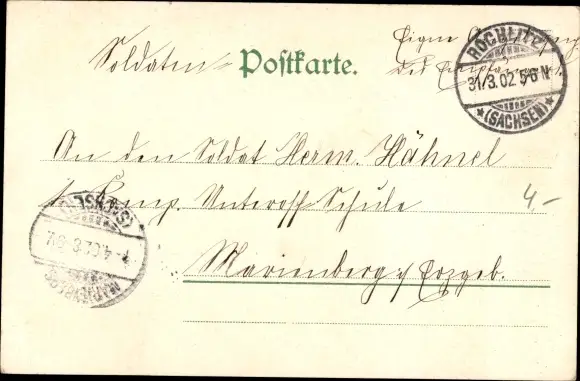 Soldaten Postkarte.
Eigne Angelegenheit
des Empfängers.
ROCHLITZ
31/3.02 5-6 N
*(SACHSEN)*
An den Soldat Herm. Hähnel
1. Komp. Unteroff. Schule
4-
Marienberg i/ Erzgeb.
(SACHSEN)
MARIENBERG